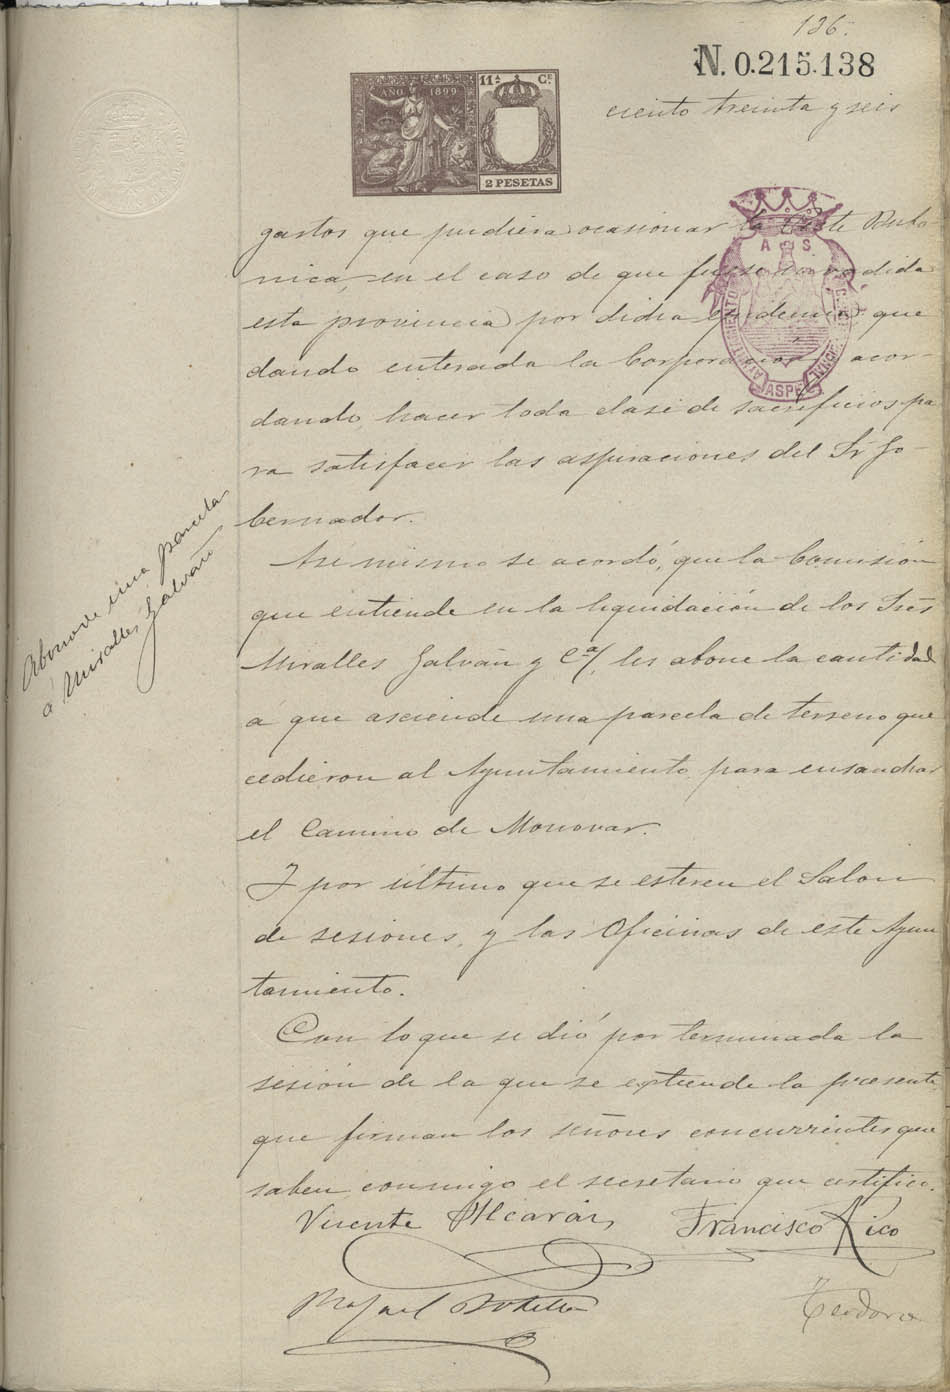 136.
N. 0.215.138
ciento treinta y seis
AÑO 1899
11ª Cᴱ
2 PESETAS
gastos que pudiera ocasionar la Peste Bubo-
nica, en el caso de que fuese invadida
esta provincia por dicha epidemia que
dando enterada la Corporación, acor-
dando, hacer toda clase de sacrificios pa
ra satisfacer las aspiraciones del Sr Go-
bernador.
Así mismo se acordó, que la Comisión
que entiende en la liquidación de los Sres
Miralles Galván y Cª/ les abone la cantidad
á que asciende una parcela de terreno que
cedieron al Ayuntamiento para ensanchar
el Camino de Monovar.
Y por último que se esteren el Salon
de sesiones, y las Oficinas de este Ayun
tamiento.
Con lo que se dió por terminada la
sesión de la que se extiende la presente,
que firman los señores concurrentes que
saben, conmigo el secretario que certifico.
Abono de una parcela
á Miralles Galván
AYUNTAMIENTO
A S
ASPE
Vicente Alcaráz
Francisco Rico
Rafael Botella
Teodoro